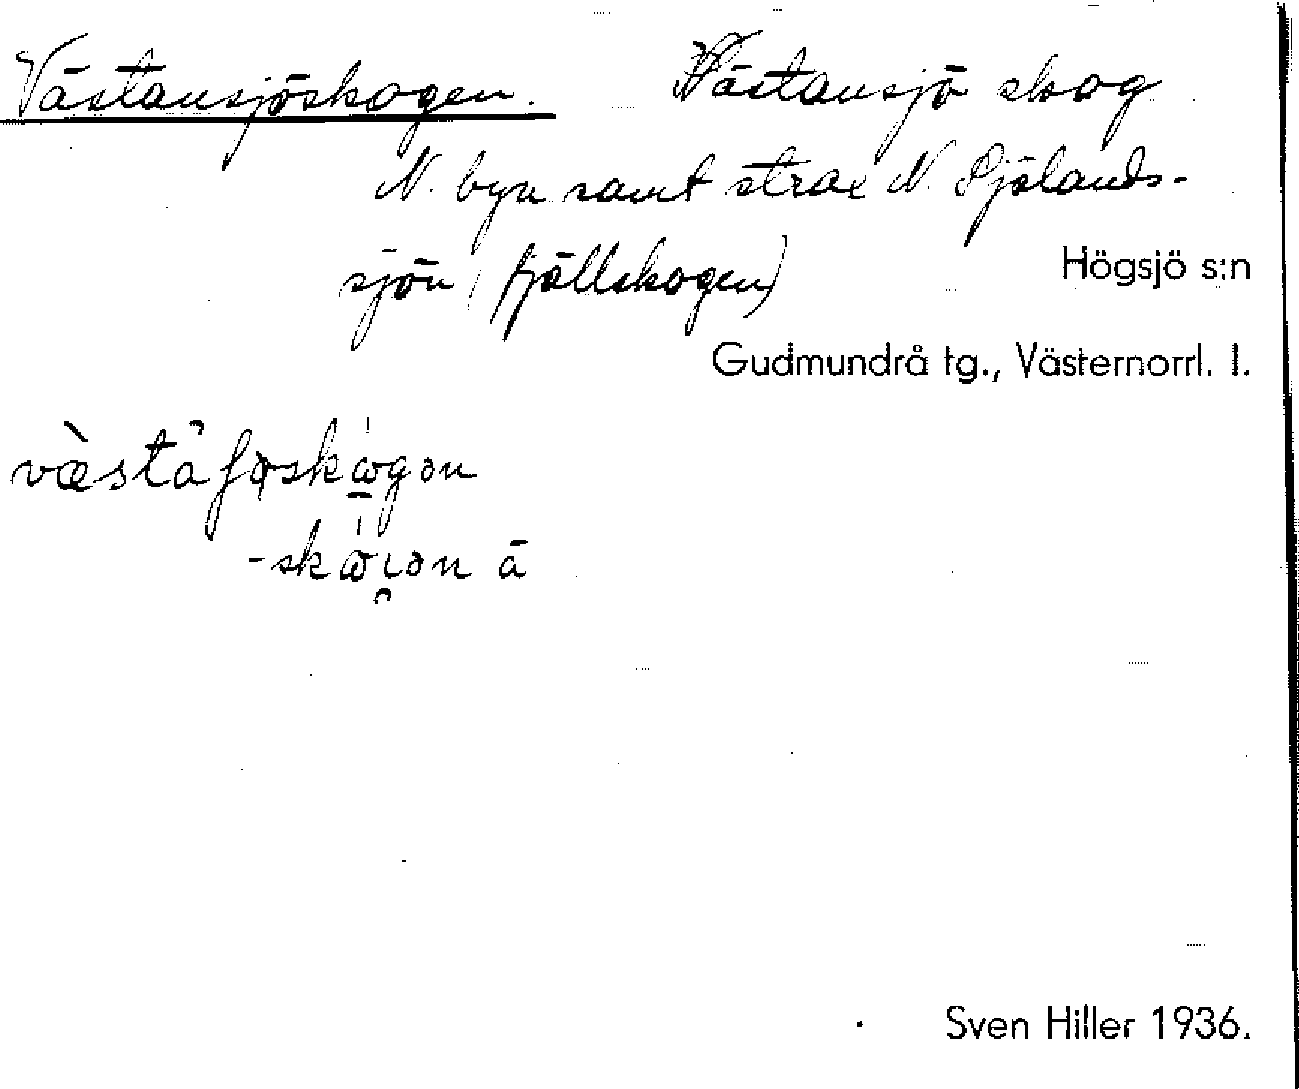 Västansjöskogen. Västansjö skog
N. byn samt strax N. Sjölands-
sjön (fjällskogen)
Högsjö s:n
Gudmundrå tg., Västernorrl. l.
-skω̄ɩən ā
Sven Hiller 1936.